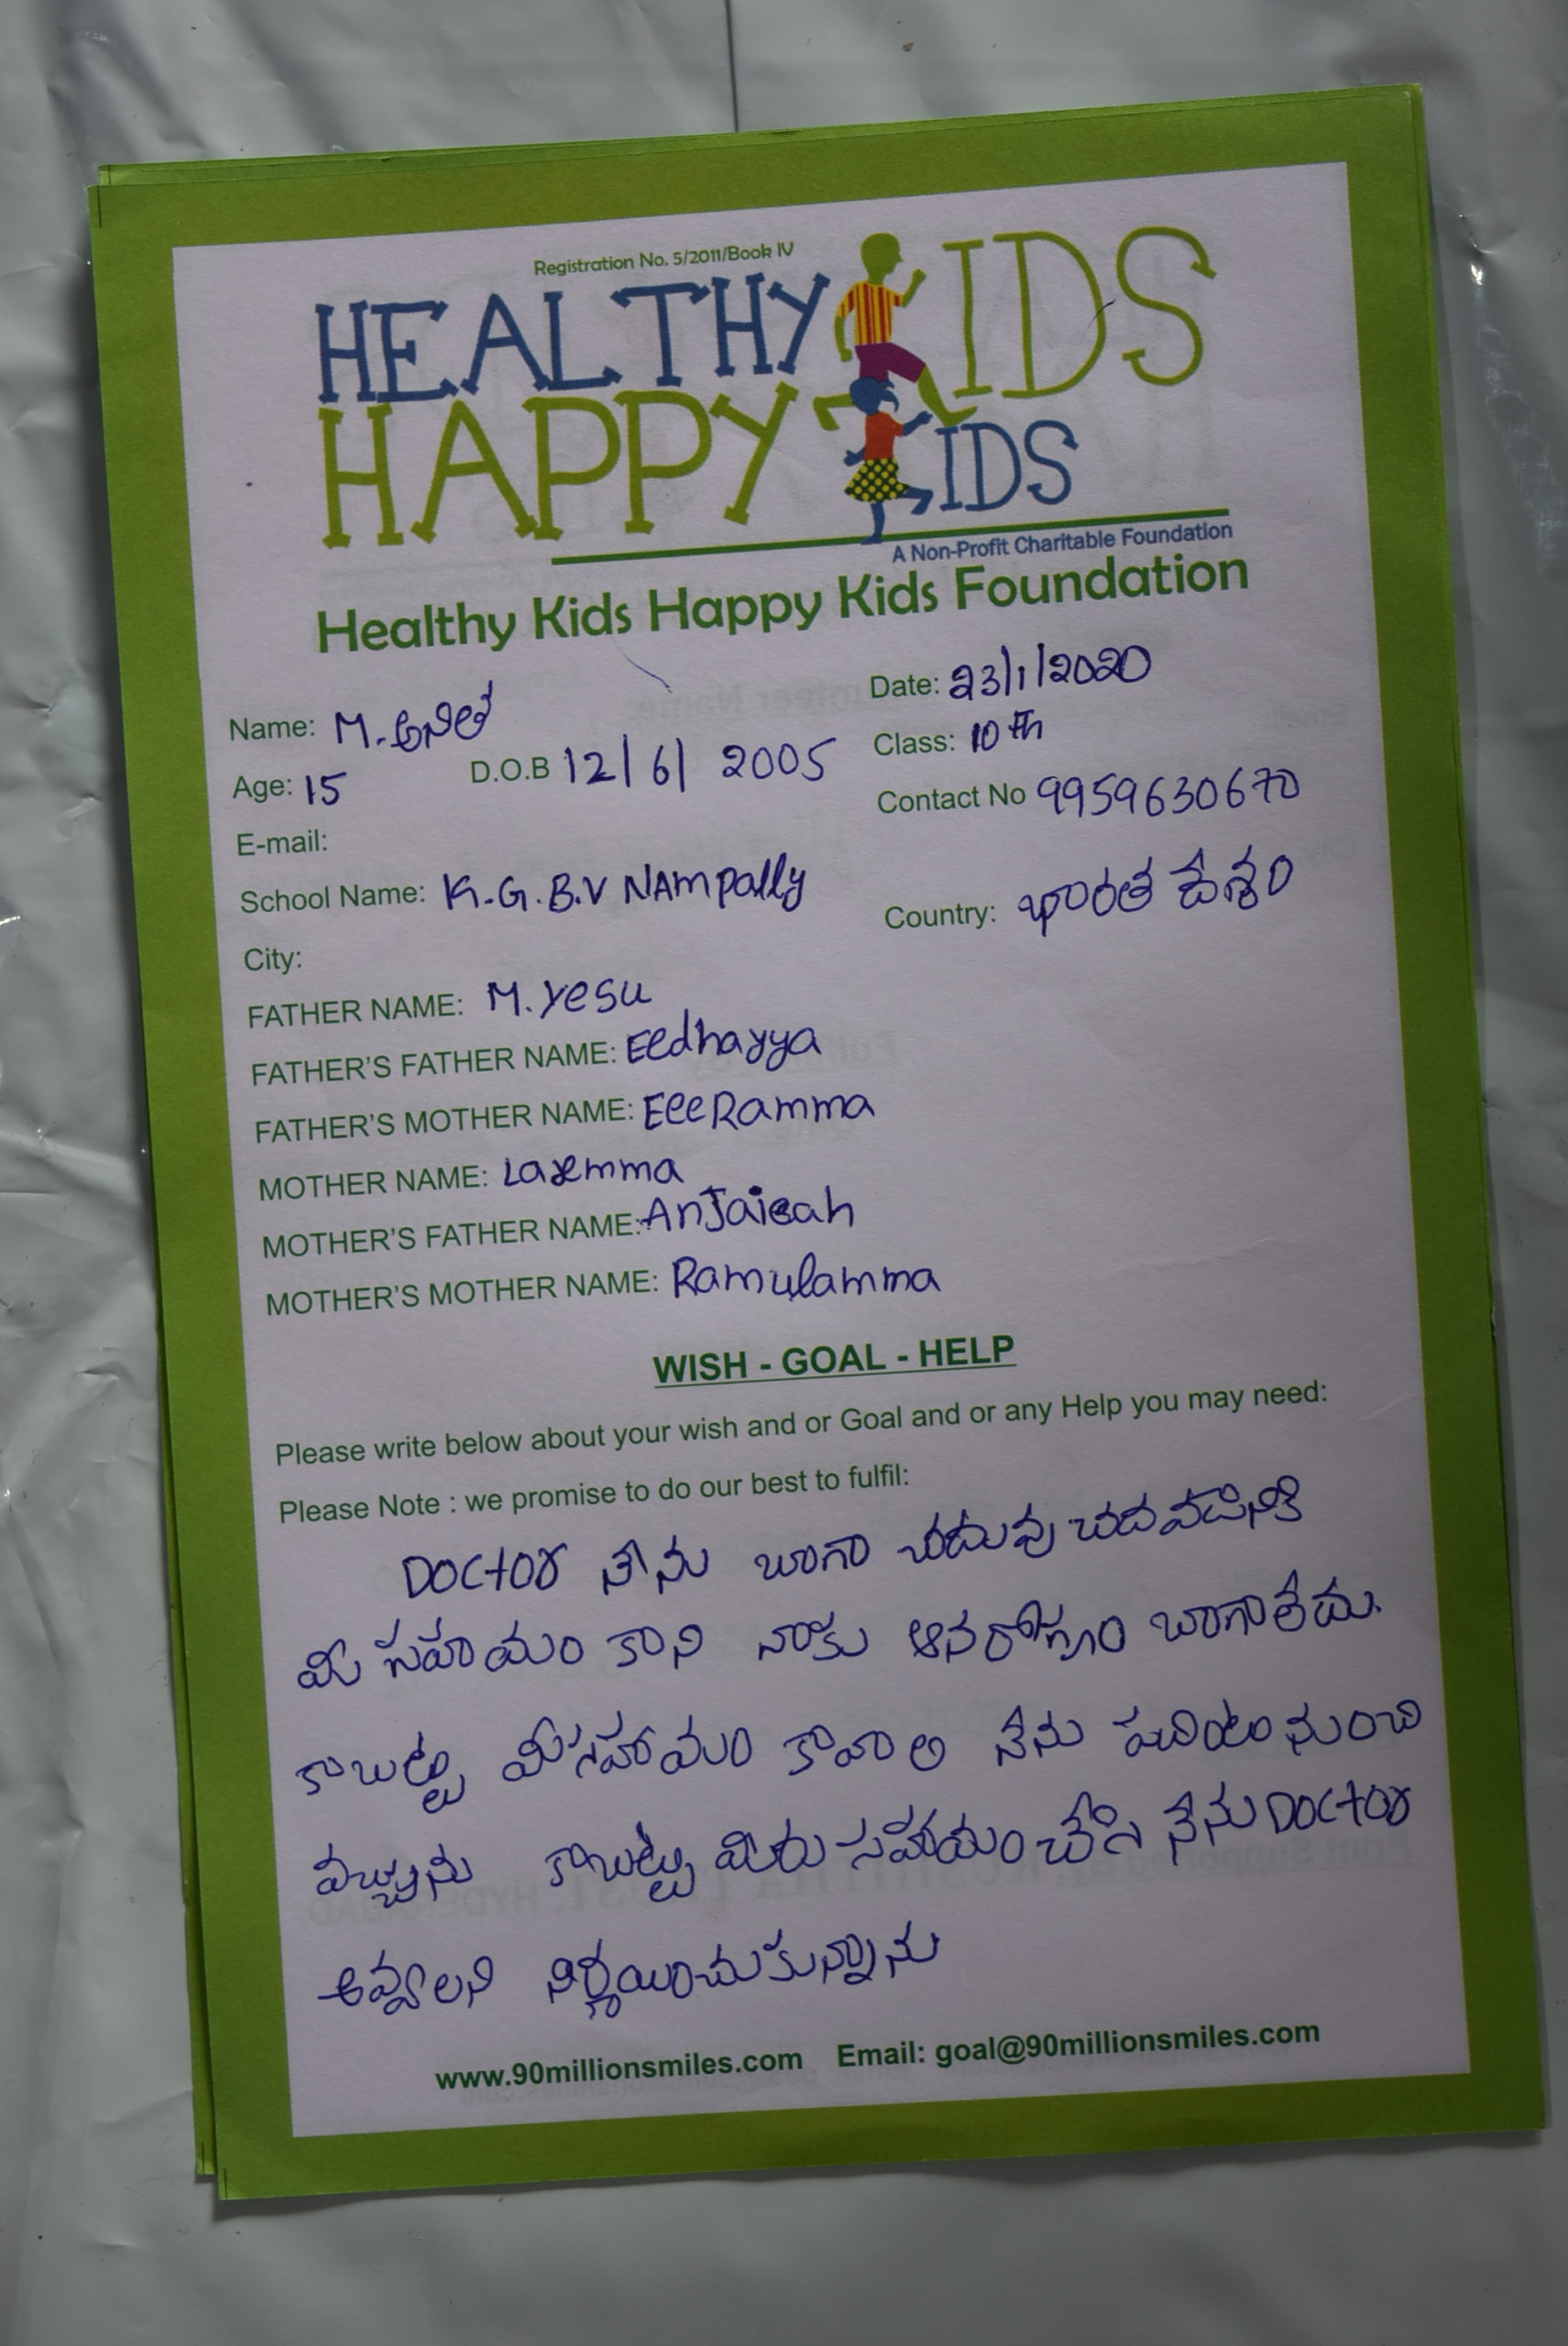 Registration No. 5/2011/Book IV
HEALTHY KIDS
HAPPY KIDS
A Non-Profit Charitable Foundation
Healthy Kids Happy Kids Foundation
Date: 23/1/2020
Name: M. అనిత
Class: 10th
Age: 15 D.O.B 12/6/ 2005
Contact No 9959630670
E-mail:
School Name: K.G.B.V NAmpally
Country: భారత దేశం
City:
FATHER NAME: M. yesu
FATHER'S FATHER NAME: Eedhayya
FATHER'S MOTHER NAME: EeeRamma
MOTHER NAME: Laxmma
MOTHER'S FATHER NAME: Anjaieah
MOTHER'S MOTHER NAME: Ramulamma
WISH - GOAL - HELP
Please write below about your wish and or Goal and or any Help you may need:
Please Note : we promise to do our best to fulfil:
DOCtor నేను బాగా చదువు చదవడానికి
మీ సహయం కాని నాకు ఆనరోగ్యం బాగాలేదు.
కాబట్టి మీ సహాయం కావాలి నేను నుంచి
వచ్చును కాబట్టి మీరు సహాయం చేసి నేను DOCtor
అవ్వాలని నిర్ణయించుకున్నాను
www.90millionsmiles.com Email: goal@90millionsmiles.com